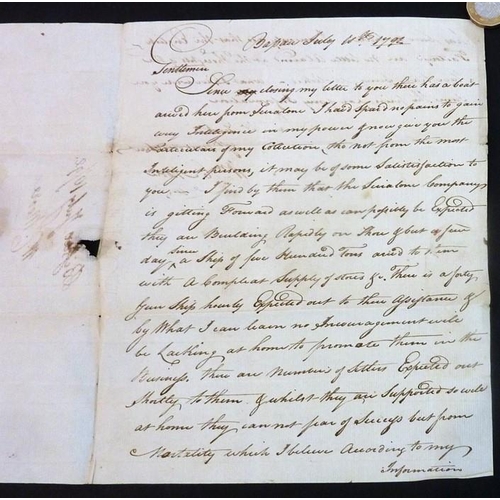 July 10th 1792
Gentlemen
Since closing my letter to you there has a boat
arivd here from Sieralone I have Spaird no pains to gain
every Intelligence in my power & now give you the
Particulars of my Collection tho not from the most
Inteligent persons, it may be of some Satisfaction to
you, I find by them that the Sieralone Company
is getting Forward as well as can possibly be Expected
they are Building Rapidly on Shore & but a few
days Since a Ship of five Hundred Tons arivd to them
with A Compleat Supply of stores &c. Ther is a forty
Gun Ship hourly Expected out to their Assistance &
by What I can learn no Incouragement will
be Lacking at home to promote them in the
Business, ther are Number of Setlers Expected out
Shortly to them, & whilst they are Supported so well
at home they can not fear of Success but from
Mortality which I believe According to my
Information